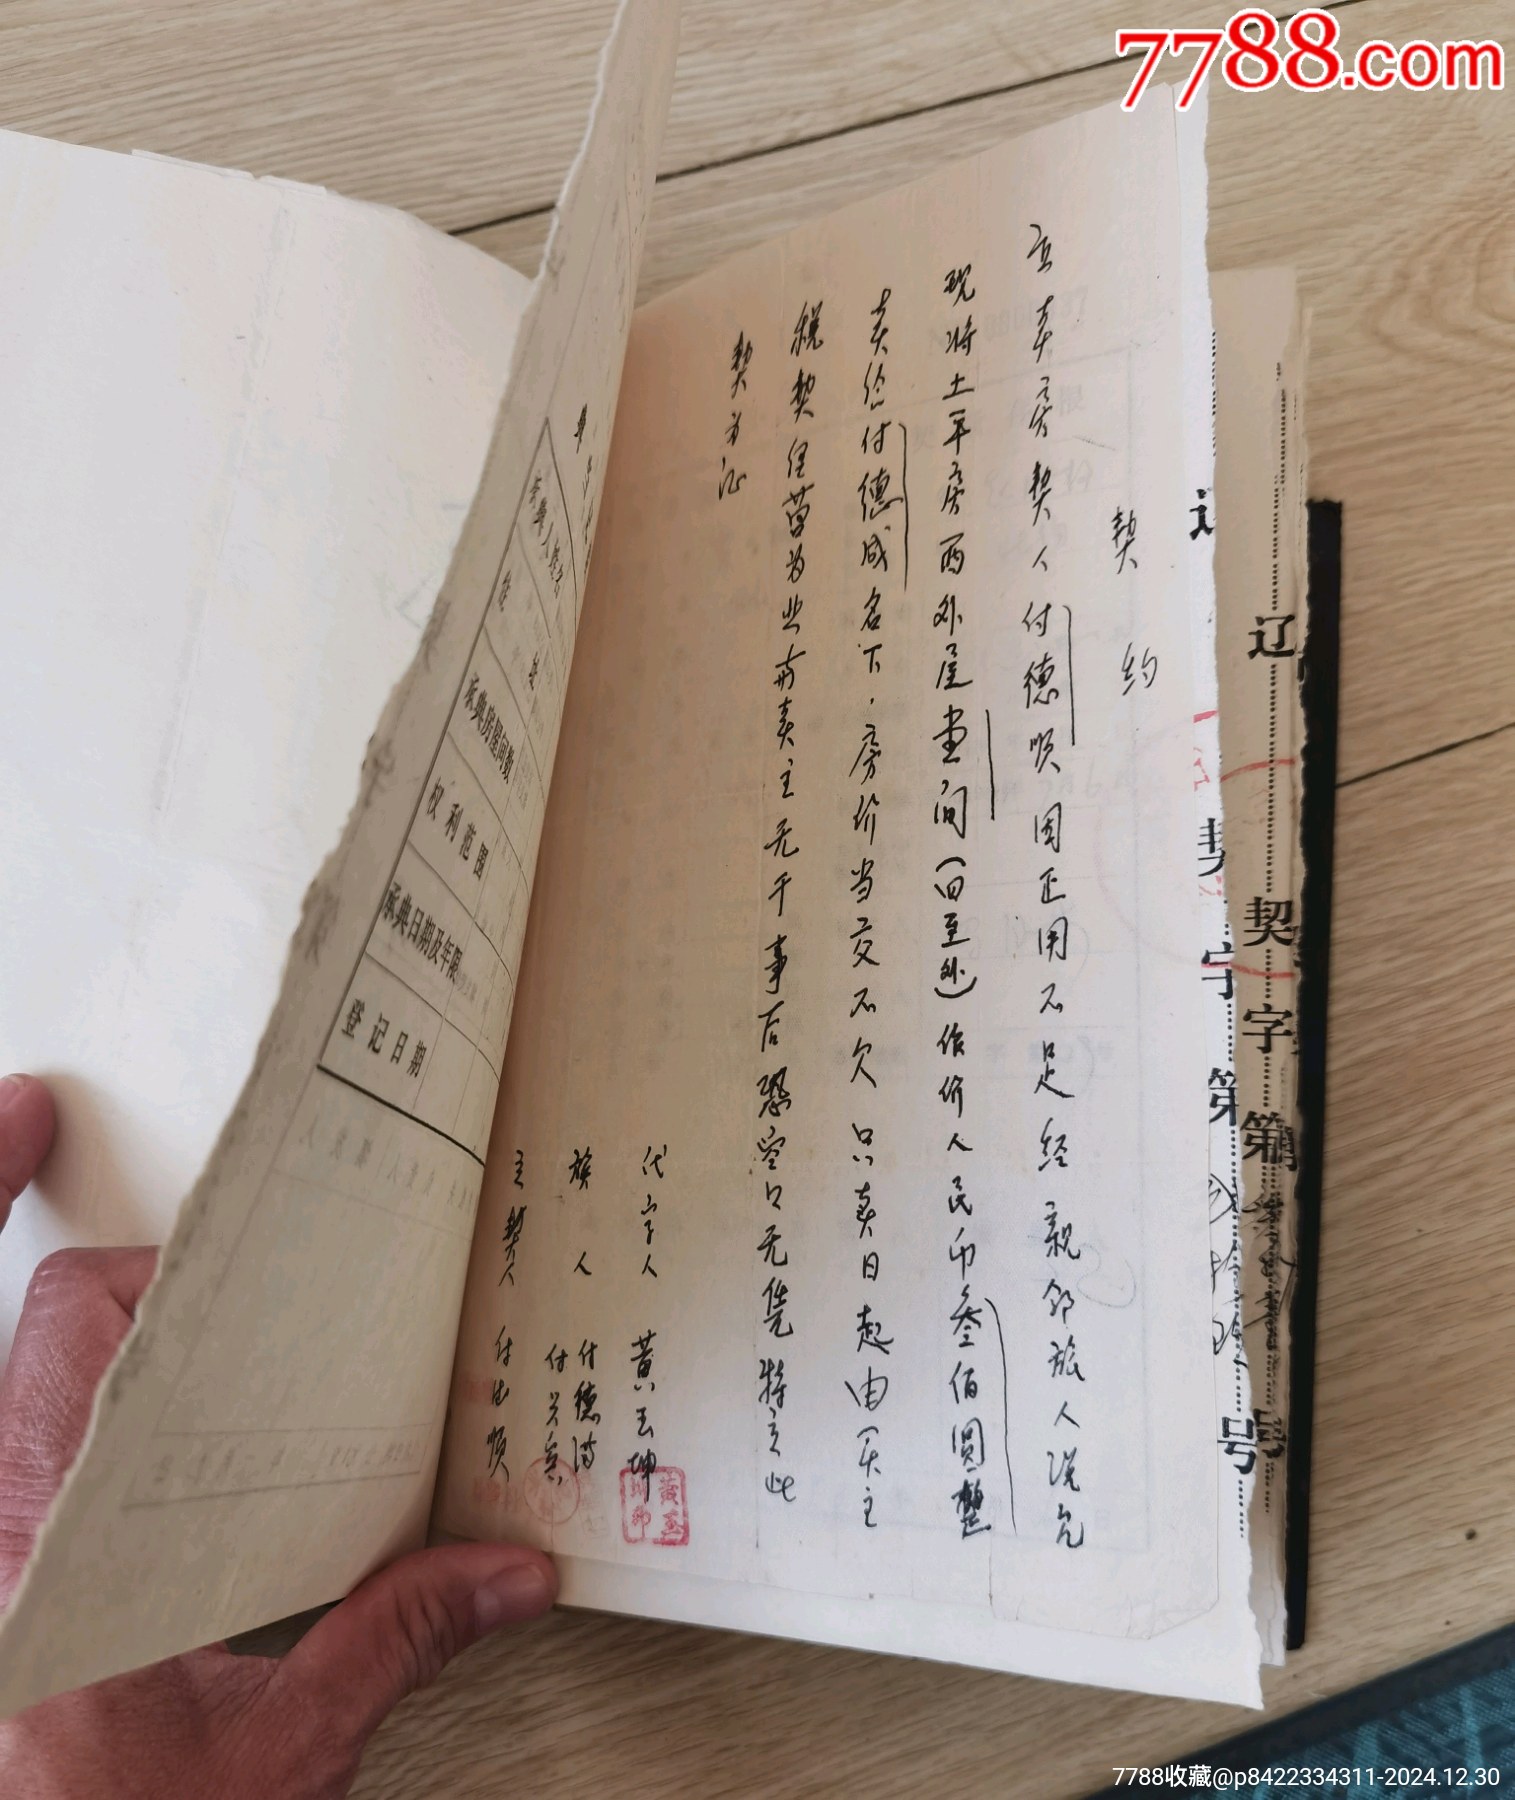 7788.com
契约
立卖房契人付德顺因正用不足经亲邻族人说允
现将土平房西外屋壹间(四至外)作价人民币叁佰圆整
卖给付德成名下.房价当交不欠只卖日起由买主
税契经营为业与卖主无干事后恐空口无凭特立此
契为证
代字人 黄玉坤
族人 付德清
付兴
立契人 付德顺
承典房屋间数
权利范围
承典日期及年限
登记日期
契字第
号
辽
契字第
号
7788收藏@p8422334311-2024.12.30